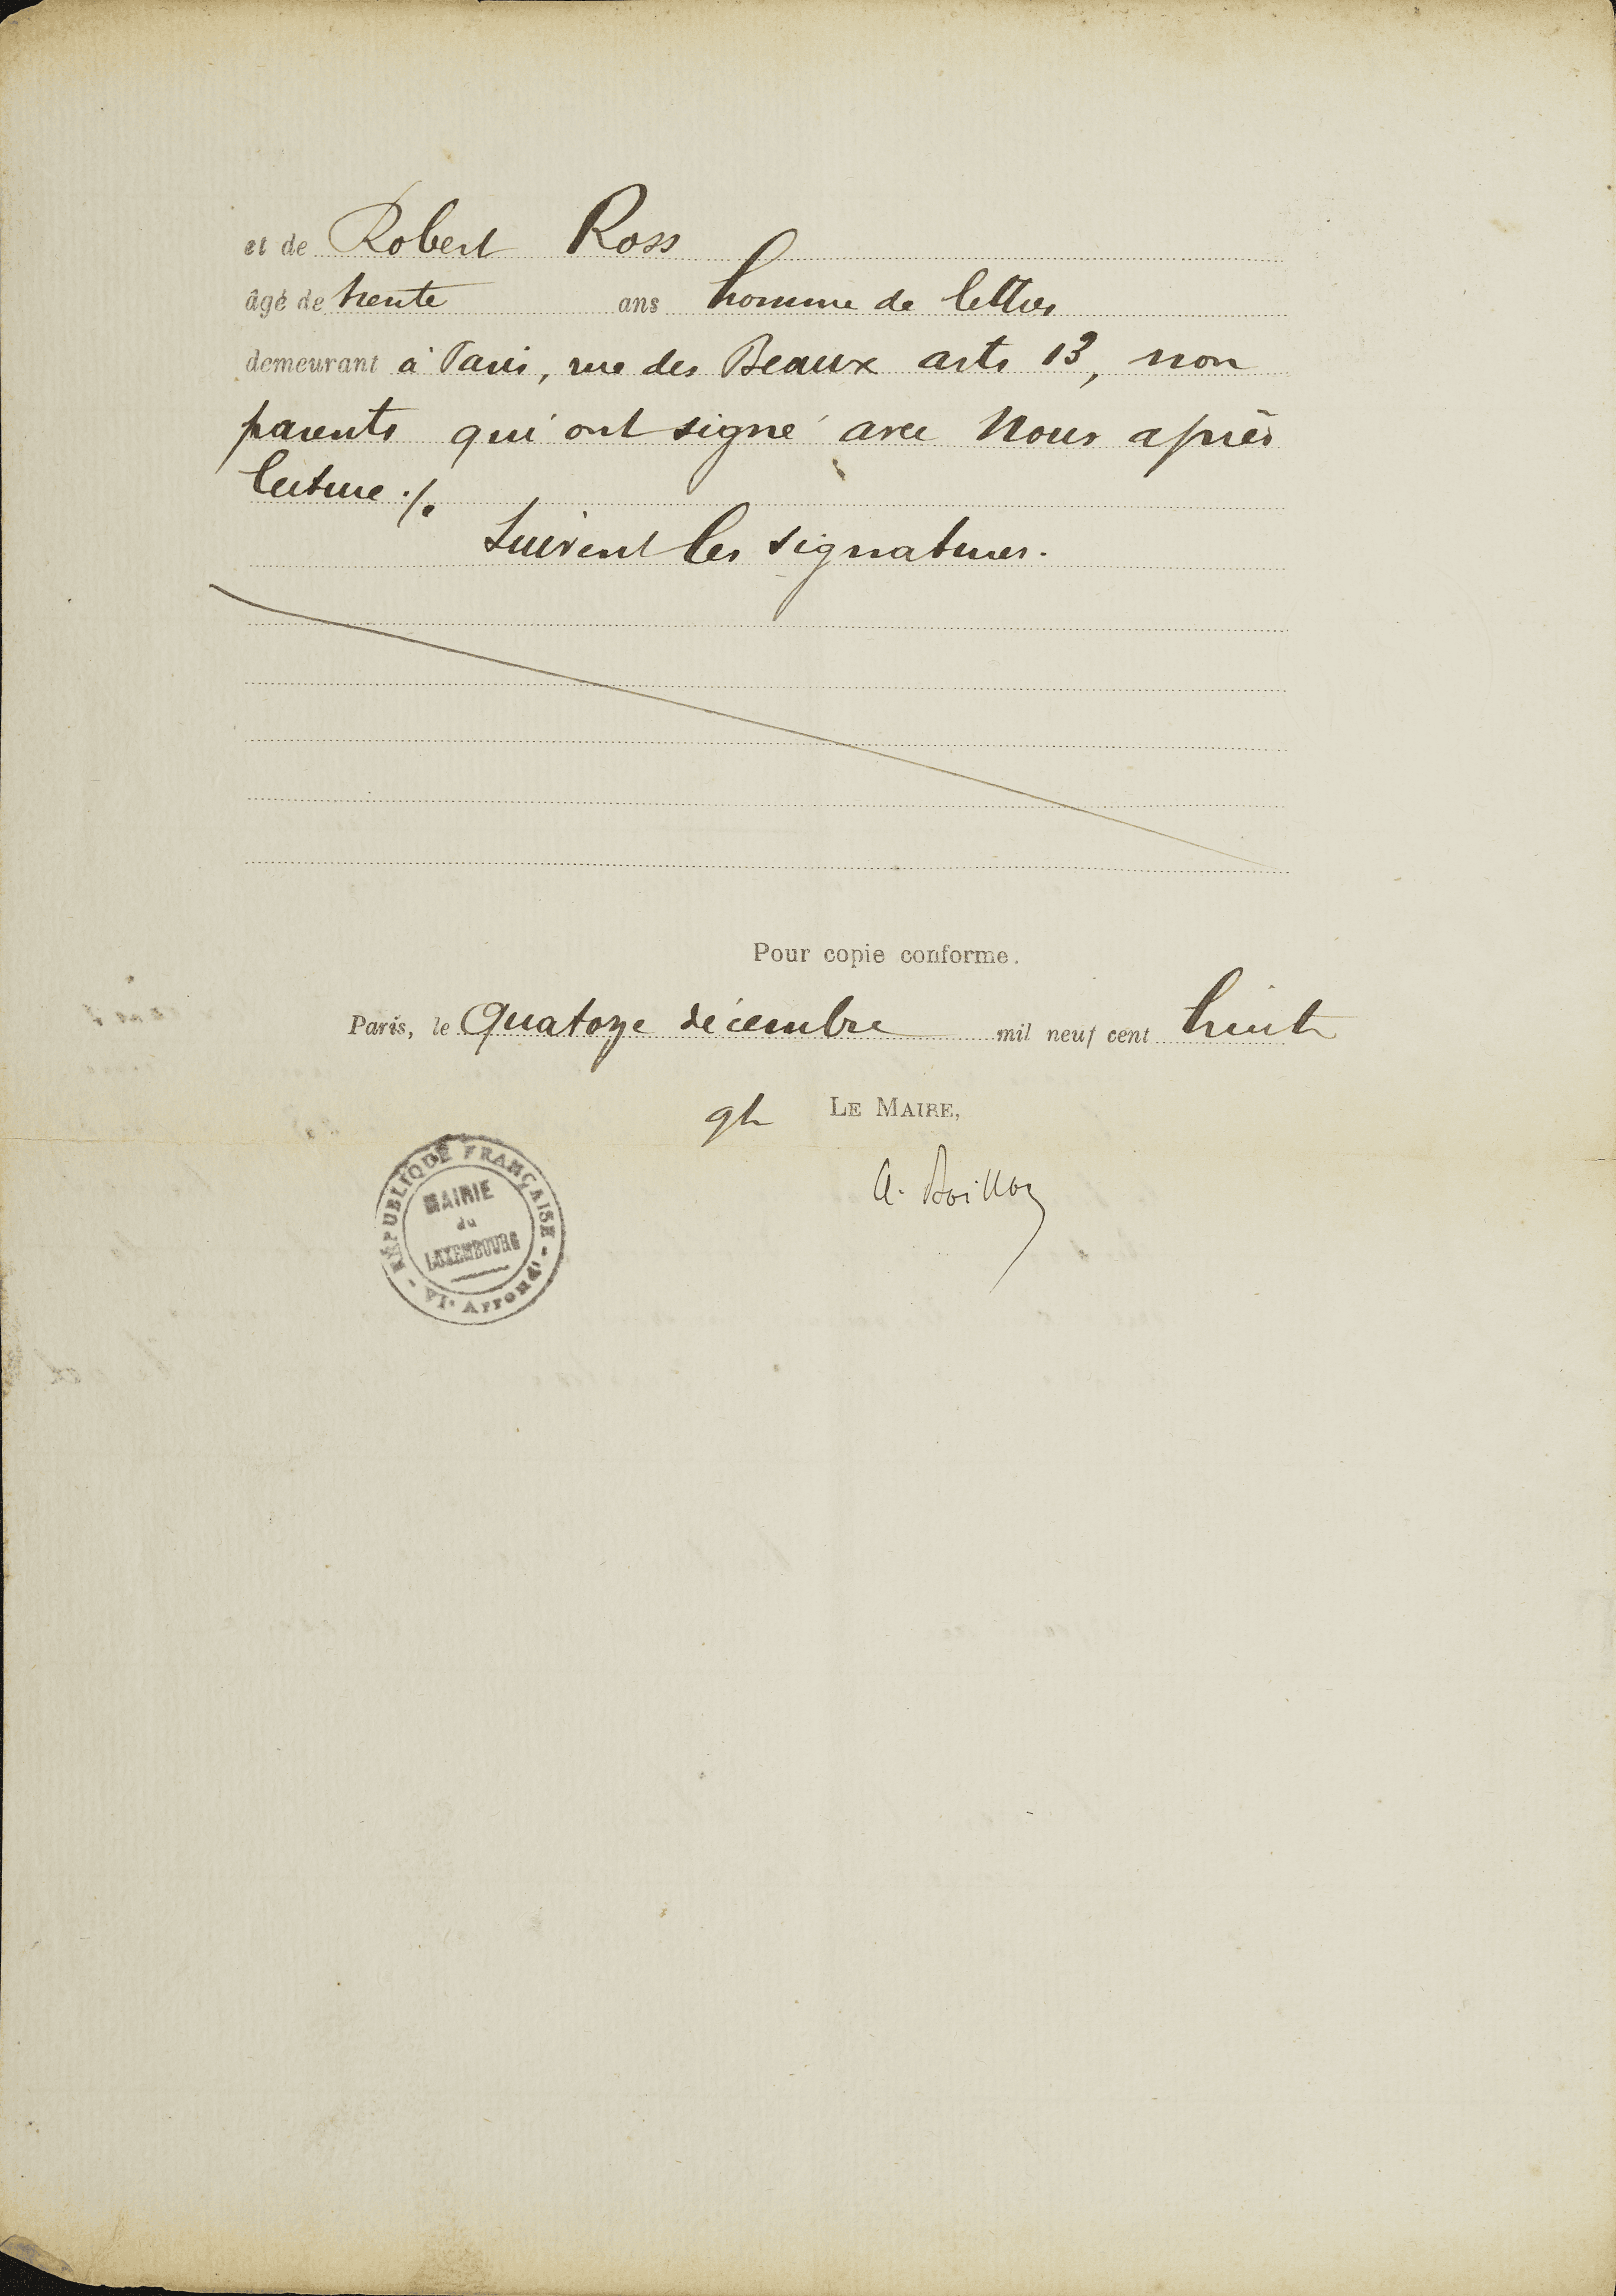 et de Robert Ross
âgé de trente ans homme de lettres
demeurant à Paris, rue des Beaux arts 13, non
parents qui ont signé avec Nous après
lecture ./.
Suivent les signatures.
Pour copie conforme.
Paris, le quatorze décembre mil neuf cent huit
LE MAIRE,
RÉPUBLIQUE FRANÇAISE
MAIRIE
du
LUXEMBOURG
VIe Arrondt